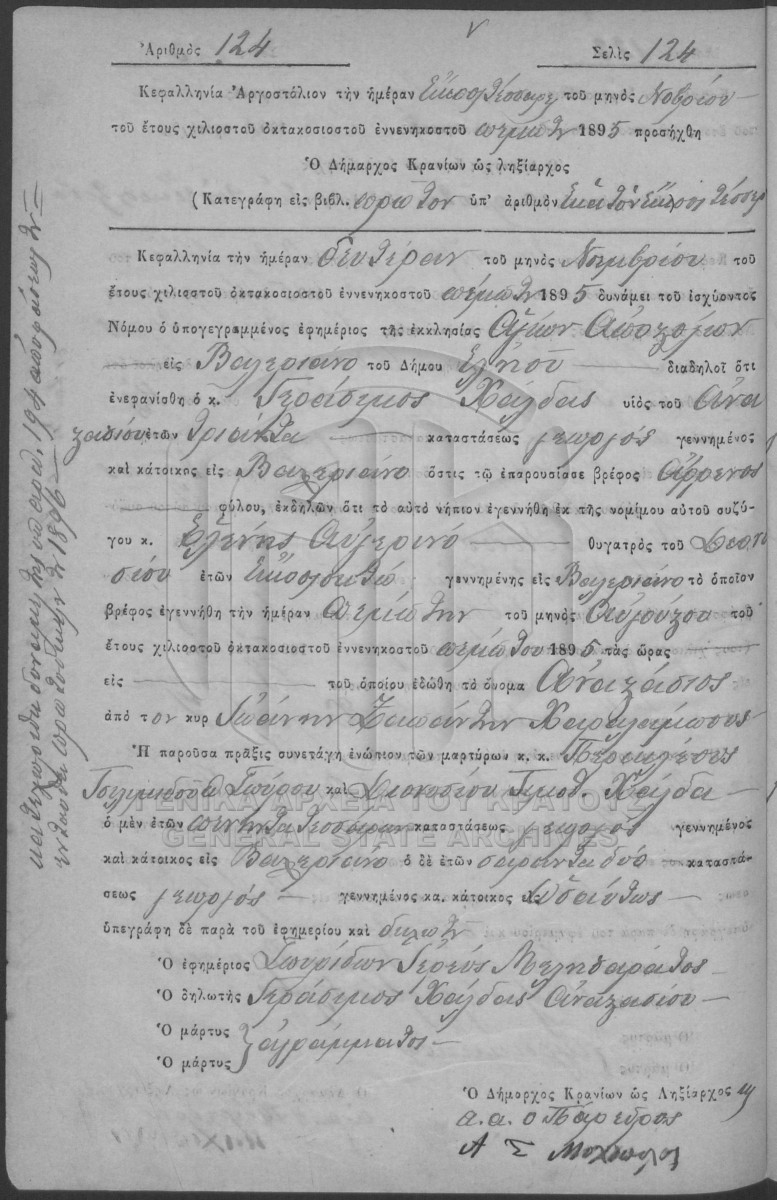 Ἀριθμὸς 124 Σελὶς 124
Κεφαλληνία Ἀργοστόλιον τὴν ἡμέραν Εἰκοστ τέσσαρες τοῦ μηνὸς Νοβρίου
τοῦ ἔτους χιλιοστοῦ ὀκτακοσιοστοῦ ἐννενηκοστοῦ πέμπτου 1895 προσήχθη
Ὁ Δήμαρχος Κρανίων ὡς ληξίαρχος
(Κατεγράφη εἰς βιβλ. πρῶτον ὑπ' ἀριθμὸν Ἑκατὸν Εἴκοσι τέσσερ
Κεφαλληνία τὴν ἡμέραν δευτέραν τοῦ μηνὸς Νοεμβρίου τοῦ
ἔτους χιλιοστοῦ ὀκτακοσιοστοῦ ἐννενηκοστοῦ πέμπτου 1895 δυνάμει τοῦ ἰσχύοντος
Νόμου ὁ ὑπογεγραμμένος ἐφημέριος τῆς ἐκκλησίας Ἁγίων Ἀποστόλων
εἰς Βαλεριάνο τοῦ Δήμου Ἐληοῦ διαδηλοῖ ὅτι
ἐνεφανίσθη ὁ κ. Γεράσιμος Χάλδας υἱὸς τοῦ Ἀνα
στασίου ἐτῶν τριάντα καταστάσεως γεωργός γεννημένος
καὶ κάτοικος εἰς Βαλεριάνο ὅστις τῷ ἐπαρουσίασε βρέφος ἄρρενος
φύλου, ἐκδηλῶν ὅτι τὸ αὐτὸ νήπιον ἐγεννήθη ἐκ τῆς νομίμου αὐτοῦ συζύ-
γου κ. Ἑλένης Αὐγερινό θυγατρὸς τοῦ
σίου ἐτῶν Εἰκοσιοκτώ γεννημένης εἰς Βαλεριάνο τὸ ὁποῖον
βρέφος ἐγεννήθη τὴν ἡμέραν πέμπτην τοῦ μηνὸς Αὐγούστου τοῦ
ἔτους χιλιοστοῦ ὀκτακοσιοστοῦ ἐννενηκοστοῦ πέμπτου 1895 τὰς ὥρας
εἰς τοῦ ὁποίου ἐδώθη τὸ ὄνομα Ἀναστάσιος
ἀπὸ τον κυρ Ἰωάννην Ζαπάντην Χαραλάμπους
Ἡ παροῦσα πρᾶξις συνετάγη ἐνώπιον τῶν μαρτύρων κ. κ. Περικλέους
Σπύρου καὶ Διονυσίου Τιμοθ. Χάλδα
ὁ μὲν ἐτῶν πενῆντα τέσσαρων καταστάσεως γεωργός γεννημένος
καὶ κάτοικος εἰς Βαλεριάνο ὁ δὲ ἐτῶν σαράντα δύο καταστά-
σεως γεωργός γεννημένος κα. κάτοικος εἰς ὡσαύτως
ὑπεγράφη δὲ παρὰ τοῦ ἐφημερίου καὶ δηλωτ
Ὁ ἐφημέριος Σπυρίδων Ἱερεύς Μεληδαράτος
Ὁ δηλωτὴς Γεράσιμος Χάλδας Ἀναστασίου
Ὁ μάρτυς } ἀγράμματοι
Ὁ μάρτυς
Ὁ Δήμαρχος Κρανίων ὡς Ληξίαρχος
α.α. ο Πάρεδρος
Α Σ
ΓΕΝΙΚΑ ΑΡΧΕΙΑ ΤΟΥ ΚΡΑΤΟΥΣ
GENERAL STATE ARCHIVES